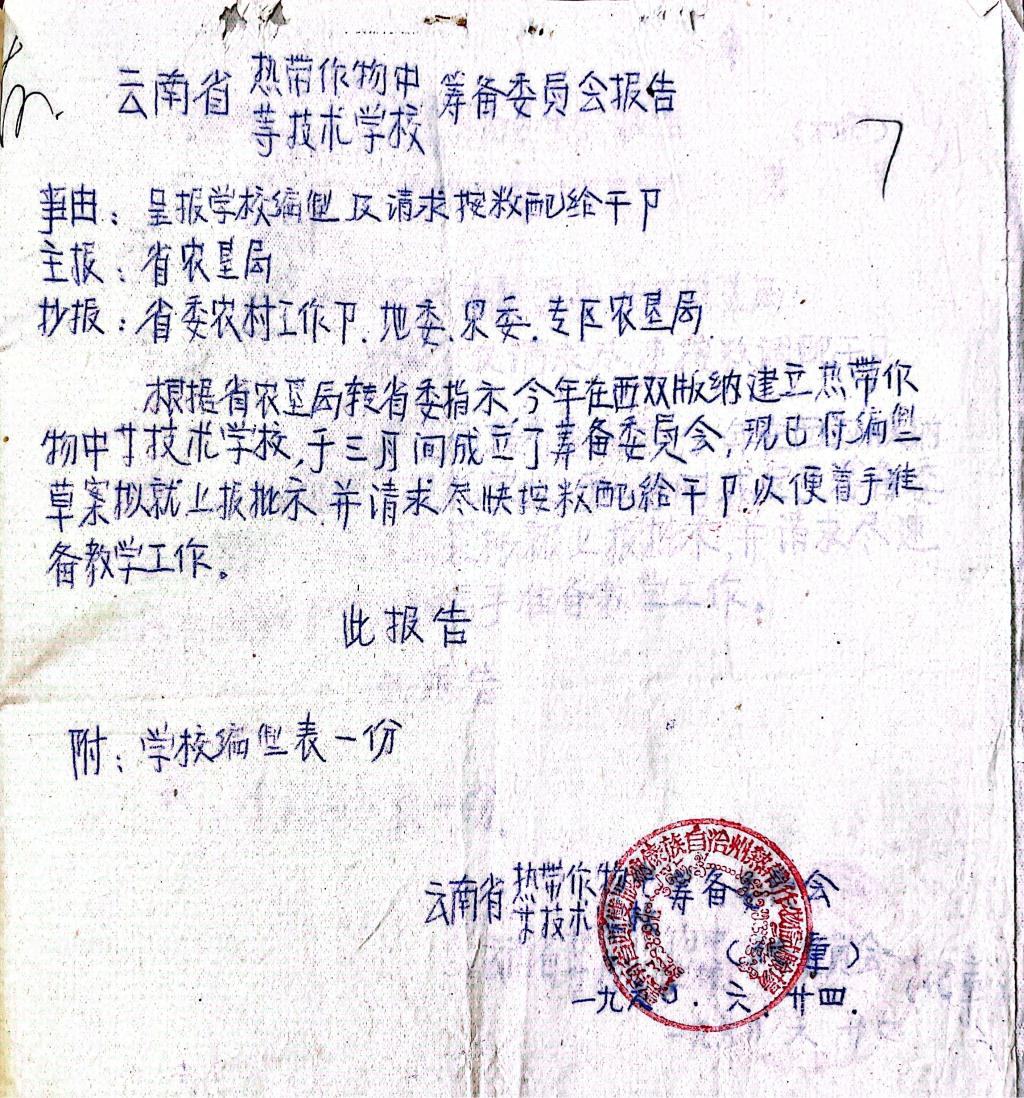 云南省热带作物中等技术学校筹备委员会报告
事由：呈报学校编制及请求按教配给干卩
主报：省农垦局
抄报：省委农村工作卩．地委、界委．专区农垦局
根据省农垦局转省委指示，今年在西双版纳建立热带作
物中䒑技术学校，于三月间成立了筹备委员会，现已将编制
草案拟就上报批示．并请求尽快按教配给干卩．以便着手准
备教学工作。
此报告
附：学校编制表一份
云南省热带作物 䒑技术 校筹备委 会
族自治州热带作物试验场
一九六〇．六．廿四．